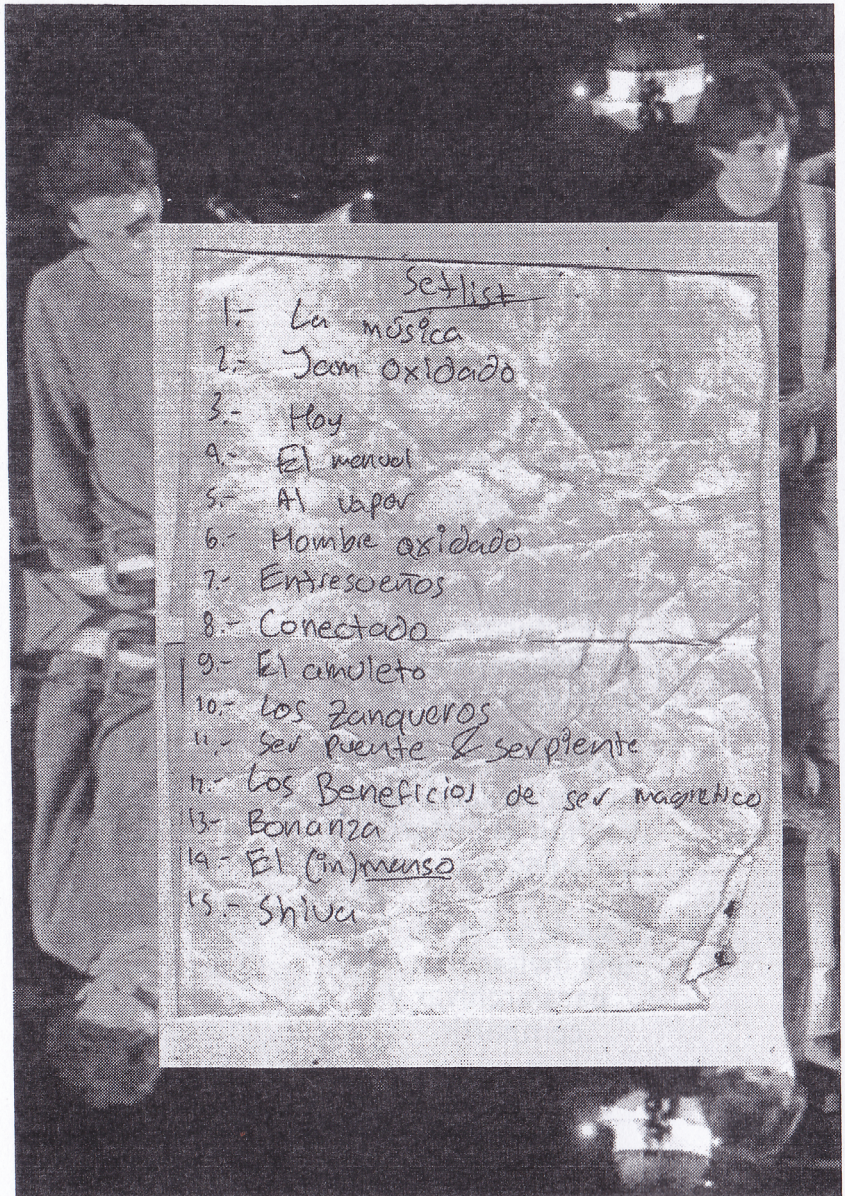 Setlist
1.- La música
2.- Jam oxidado
3.- Hoy
4.- El menval
5.- Al vapor
6.- Hombre oxidado
7.- Entresueños
8.- Conectado
9.- El amuleto
10.- Los Zanqueros
11.- Ser puente & serpiente
12.- Los Beneficios de ser magnético
13.- Bonanza
14.- El (in)menso
15.- Shiva